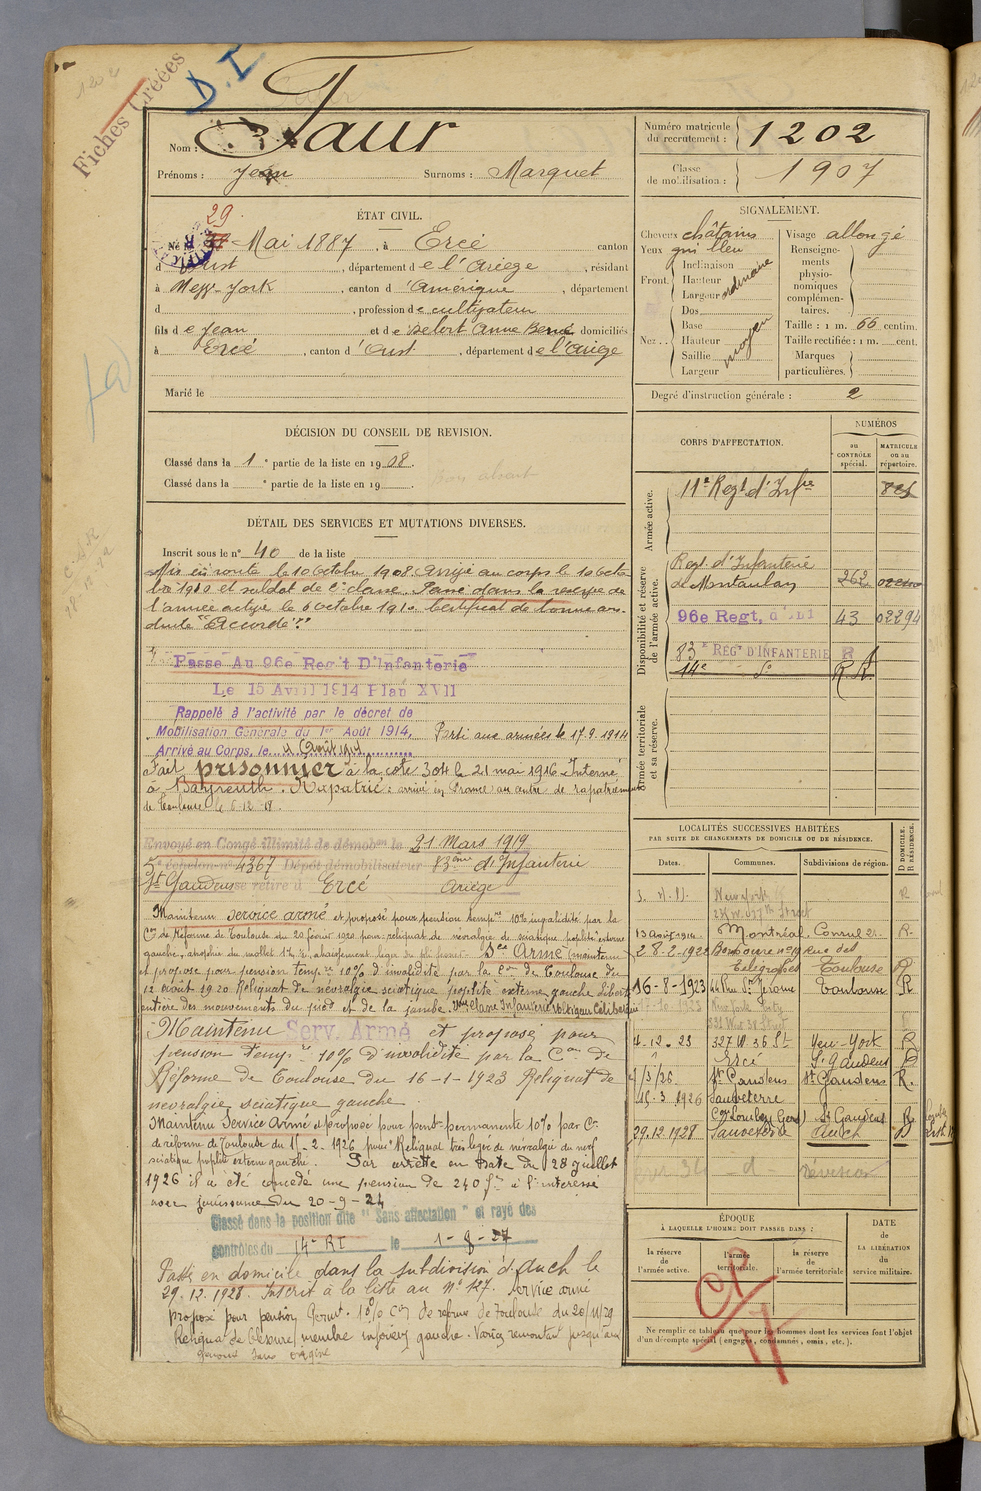 1202
Fiches Créées
D.I
Nom : Faur
Prénoms : Jean Surnoms : Marquet
Numéro matricule du recrutement : 1202
Classe de mobilisation : 1907
ÉTAT CIVIL.
29
Né le Mai 1887, à Ercé canton
d'Oust, département de l'Ariège, résidant
à New-York, canton d'Amérique, département
d , profession de cultivateur
fils de Jean et de domiciliés
à Ercé, canton d'Oust, département de l'Ariège
Marié le
SIGNALEMENT.
Cheveux châtains Visage allongé
Yeux gris bleu
Front. Inclinaison Hauteur Largeur ordinaire
Nez.. Dos Base Hauteur Saillie Largeur moyen
Renseignements physionomiques complémentaires.
Taille : 1 m. 66 centim.
Taille rectifiée : 1 m. cent.
Marques particulières.
Degré d'instruction générale : 2
DÉCISION DU CONSEIL DE REVISION.
Classé dans la 1e partie de la liste en 1908.
Classé dans la e partie de la liste en 19
Bon absent
DÉTAIL DES SERVICES ET MUTATIONS DIVERSES.
Inscrit sous le n° 40 de la liste
Mis en route le 10 Octobre 1908. Arrivé au corps le 10 octo
bre 1908 et soldat de 2e classe. Passé dans la réserve de
l'armée active le 6 octobre 1910. Certificat de bonne con-
duite "Accordé".
Passé Au 96e Reg't D'Infanterie
Le 15 Avril 1914 Plan XVII
Rappelé à l'activité par le décret de
Mobilisation Générale du 1er Août 1914,
Arrivé au Corps, le 4 Août 1914
Parti aux armées le 17.9.1914
Fait prisonnier à la côte 304 le 21 mai 1916 Interné
à Bayreuth. Rapatrié : arrivé en France au centre de rapatriement
de Toulouse le 6-12-18.
Envoyé en Congé illimité de démobon le 21 Mars 1919
5e échelon n° 4367 Dépôt démobilisateur 83ème d'Infanterie
St Gaudens se retire à Ercé Ariège
Maintenu service armé et proposé pour pension tempre 10% invalidité par la
Con de Réforme de Toulouse du 20 février 1920 pour reliquat de névralgie du sciatique poplité externe
gauche, Sce Armé (maintenu
et proposé pour pension tempre 10% d'invalidité par la Con de Toulouse du
12 août 1920 Reliquat de névralgie sciatique poplité externe gauche Liberté
entière des mouvements du pied et de la jambe.
Maintenu Serv. Armé et proposé pour
pension tempre 10% d'invalidité par la Con de
Réforme de Toulouse du 16-1-1923 Reliquat de
névralgie sciatique gauche
Maintenu Service Armé et proposé pour pent-permanente 10% par Con
de réforme de Toulouse du 15-2-1926 pour Reliquat très léger de névralgie du nerf
sciatique poplité externe gauche. Par arrêté en date du 28 Juillet
1926 il a été concédé une pension de 240 frs à l'intéressé
avec jouissance du 20-9-24
Classé dans la position dite "Sans affectation" et rayé des
contrôles du 14e RI le 1-8-27
Passé en domicile dans la subdivision d'Auch le
29.12.1928. Inscrit à la liste au N° 127. Service armé
proposé pour pension Permt. 10% Con de réforme de Toulouse du
Reliquat de blessure, membre inférieur gauche.
CORPS D'AFFECTATION.
NUMÉROS
au CONTRÔLE spécial.
MATRICULE ou au répertoire.
Armée active.
11e Regt d'Infie
Disponibilité et réserve de l'armée active.
Regt d'Infanterie
de Montauban 262
96e Regt. d'Inf 43 02294
83e RÉGT D'INFANTERIE R
14e do R.A.
Armée territoriale et sa réserve.
LOCALITÉS SUCCESSIVES HABITÉES
PAR SUITE DE CHANGEMENTS DE DOMICILE OU DE RÉSIDENCE.
Dates. Communes. Subdivisions de région. D DOMICILE. R RÉSIDENCE.
New York R
13 août 1914 Montréal Consul Gl. R.
28.2.1922 Rue des
Télégraphes Toulouse R
16-8-1923 44 Rue St Jérôme Toulouse R
17-10-1923 New York City
331 West 31 Street
4-12-23 327 W. 36 St New-York R
Ercé St Gaudens D
4/3/26 St Gaudens St Gaudens R.
15.3.1926 Sauveterre
(Gers) St Gaudens R
29.12.1928 Sauveterre Auch D
ÉPOQUE
À LAQUELLE L'HOMME DOIT PASSER DANS :
la réserve de l'armée active.
l'armée territoriale.
la réserve de l'armée territoriale
DATE DE LA LIBÉRATION DU service militaire.
Ne remplir ce tableau que pour les hommes dont les services font l'objet
d'un décompte spécial (engagés, condamnés, omis, etc.).